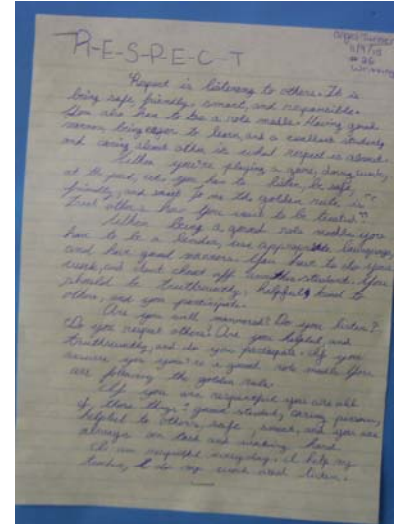 R-E-S-P-E-C-T
11/9/15
# 26
Writing
Respect is listening to others. It is
being safe, friendly, smart, and responsible.
You also has to be a role model. Having good
manners, being eager to learn, and a excellent student
and caring about other is what respect is about.
When you're playing a game, doing work,
at the you have to listen, be safe,
friendly, and smart. To me the golden rule is "
Treat others how you want to be treated."
When being a good role model you
have to be a leader, use appropriate language,
and have good manners. You have to do your
work, and don't cheat off another student. You
should be trustworthy, helpful, kind to
others, and you participate.
Are you well mannered? Do you listen?
Do you respect others? Are you helpful, and
trustworthy, and do you participate. If you
answer yes your a good role model. You
are following the golden rule.
If you are respectful you are all
of these things: good student, caring person,
helpful to others, safe, smart, and you are
always on task and working hard.
I am respectful everyday. I help my
teacher, I do my work and listen.